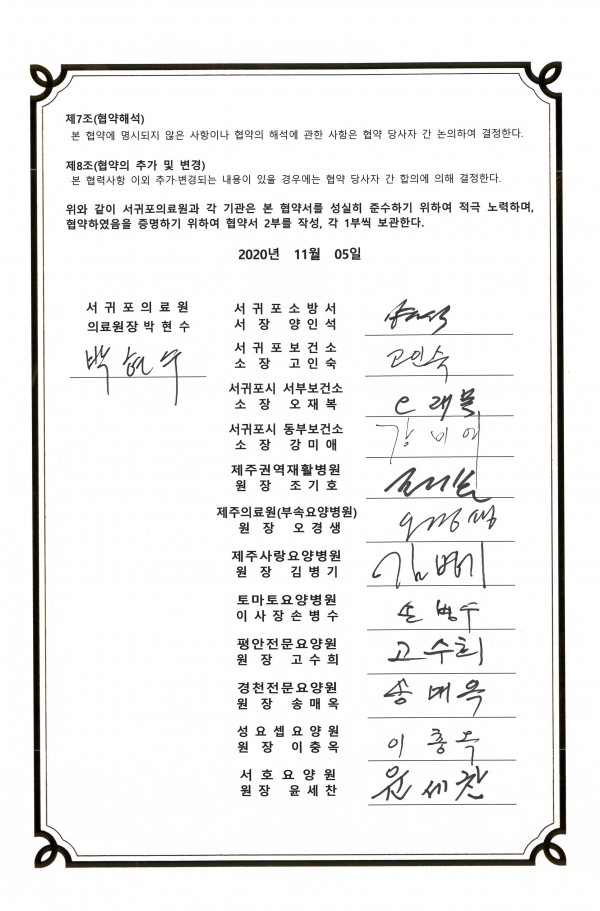 제7조(협약해석)
본 협약에 명시되지 않은 사항이나 협약의 해석에 관한 사항은 협약 당사자 간 논의하여 결정한다.
제8조(협약의 추가 및 변경)
본 협력사항 이외 추가·변경되는 내용이 있을 경우에는 협약 당사자 간 합의에 의해 결정한다.
위와 같이 서귀포의료원과 각 기관은 본 협약서를 성실히 준수하기 위하여 적극 노력하며,
협약하였음을 증명하기 위하여 협약서 2부를 작성, 각 1부씩 보관한다.
2020년 11월 05일
서 귀 포 의 료 원
의료원장 박 현 수
박현수
서 귀 포 소 방 서
서 장 양 인 석
서 귀 포 보 건 소
소 장 고 인 숙
고인숙
서귀포시 서부보건소
소 장 오 재 복
서귀포시 동부보건소
소 장 강 미 애
강 미 애
제주권역재활병원
원 장 조 기 호
제주의료원(부속요양병원)
원 장 오 경 생
오경생
제주사랑요양병원
원 장 김 병 기
김병기
토마토요양병원
이 사 장 손 병 수
손 병수
평안전문요양원
원 장 고 수 희
고 수희
경천전문요양원
원 장 송 매 옥
송 매 옥
성 요 셉 요 양 원
원 장 이 충 옥
이 충 옥
서 호 요 양 원
원 장 윤 세 찬
윤 세 찬